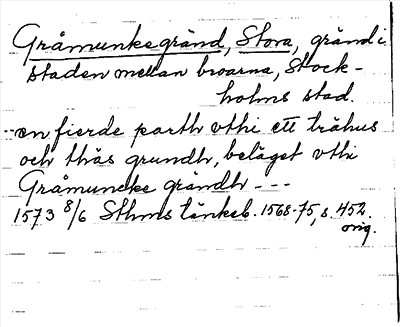 Gråmunkegränd, Stora, gränd i
staden mellan broarna, Stock-
holms stad.
en fierde parth vthi ett trähus
och thäs grundh, beläget vthi
Gråmuncke grändh - - -
1573 8/6 Sthms tänkeb. 1568-75, s. 452.
orig.